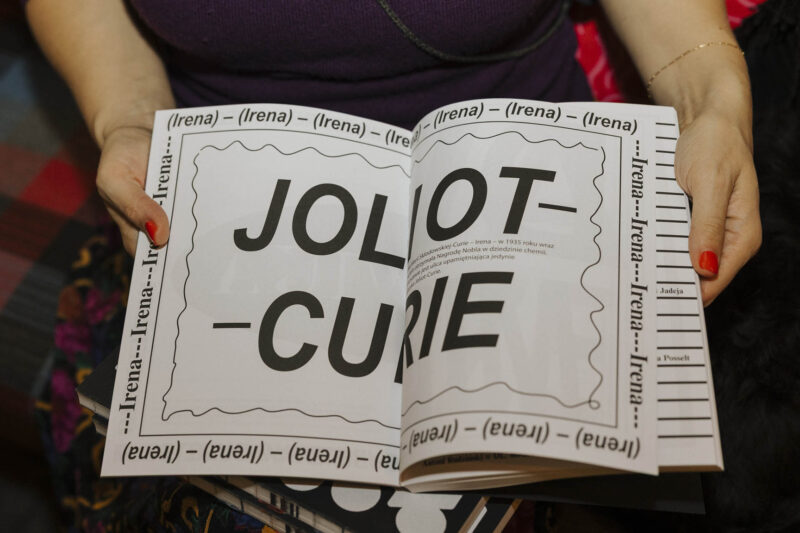 (Irena) – (Irena) – (Irena) – (Irena)
(Irena) – (Irena) – (Irena)
Irena---Irena---Irena
JOLIOT–
Skłodowskiej-Curie – Irena – w 1935 roku wraz
otrzymała Nagrodę Nobla w dziedzinie chemii,
jest ulica upamiętniająca jedynie
Joliot-Curie.
–CURIE
Irena---Irena---Irena---Irena---Irena
Jadeja
Posselt
(Irena) – (Irena) – (Irena)
(Irena) – (Irena) – (Irena)